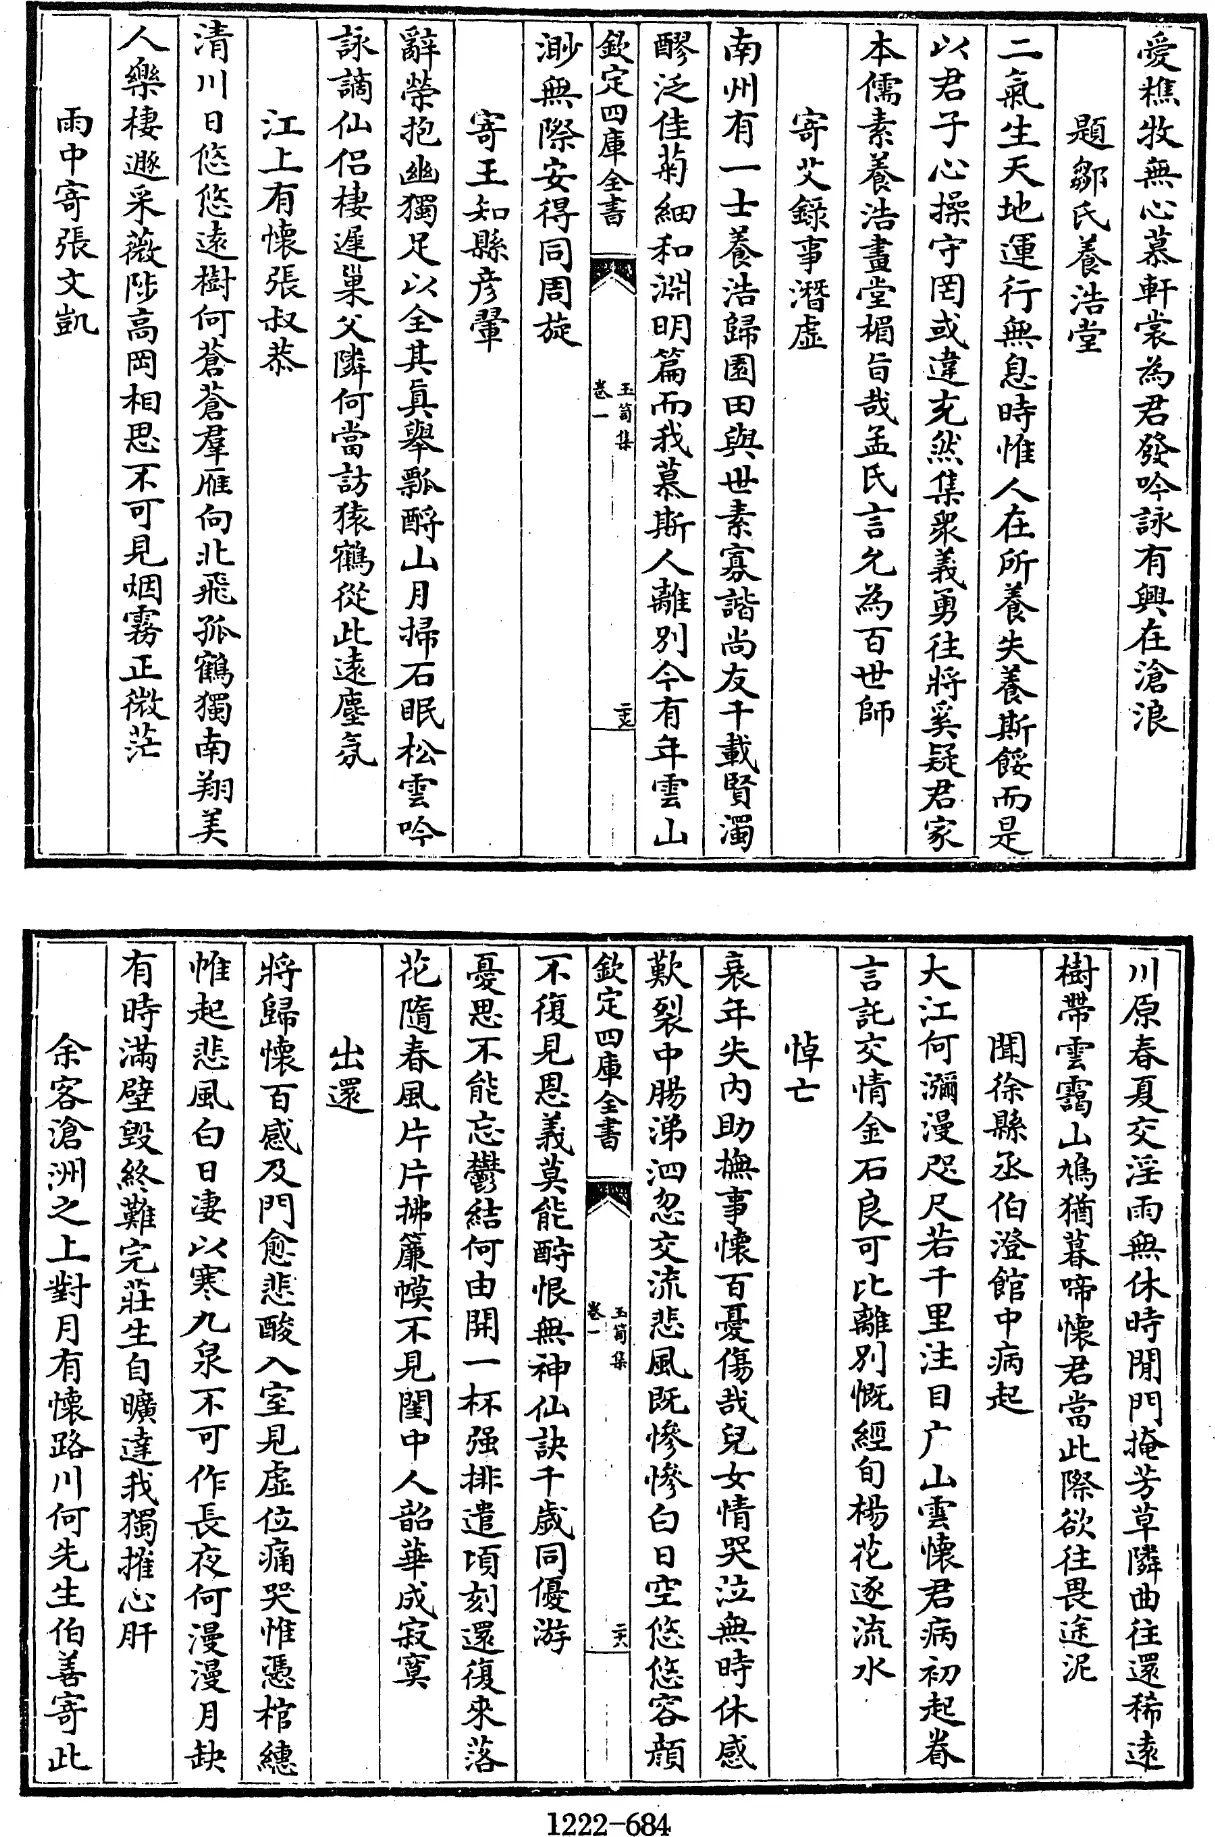 愛樵牧無心慕軒裳為君發吟詠有興在滄浪
題鄒氏養浩堂
二氣生天地運行無息時惟人在所養失養斯餒而是
以君子心操守罔或違充然集衆義勇往將奚疑君家
本儒素養浩畫堂楣旨哉孟氏言允為百世師
寄艾錄事潛虛
南州有一士養浩歸園田與世素寡諧尚友千載賢濁
醪泛佳菊細和淵明篇而我慕斯人離別今有年雲山
欽定四庫全書
玉笥集
卷一
渺無際安得同周旋
寄王知縣彦翬
辭榮抱幽獨足以全其真舉瓢酹山月掃石眠松雲吟
詠謫仙侶棲遲巢父隣何當訪猿鶴從此遠塵氛
江上有懷張叔恭
清川日悠悠遠樹何蒼蒼羣雁向北飛孤鶴獨南翔美
人樂棲遯采薇陟高岡相思不可見烟霧正微茫
雨中寄張文凱
川原春夏交淫雨無休時閒門掩芳草隣曲往還稀遠
樹帶雲靄山鳩猶暮啼懷君當此際欲往畏途泥
聞徐縣丞伯澄館中病起
大江何瀰漫咫尺若千里注目广山雲懷君病初起眷
言託交情金石良可比離別慨經旬楊花逐流水
悼亡
衰年失內助撫事懷百憂傷哉兒女情哭泣無時休感
歎裂中腸涕泗忽交流悲風旣慘慘白日空悠悠容顏
欽定四庫全書
玉笥集
卷一
二六
不復見恩義莫能酬恨無神仙訣千歲同優游
憂思不能忘鬱結何由開一杯强排遣頃刻還復來落
花隨春風片片拂簾幙不見閨中人韶華成寂寞
出還
將歸懷百感及門愈悲酸入室見虛位痛哭惟憑棺繐
帷起悲風白日凄以寒九泉不可作長夜何漫漫月缺
有時滿壁毀終難完莊生自曠達我獨摧心肝
余客滄洲之上對月有懷路川何先生伯善寄此
1222-684